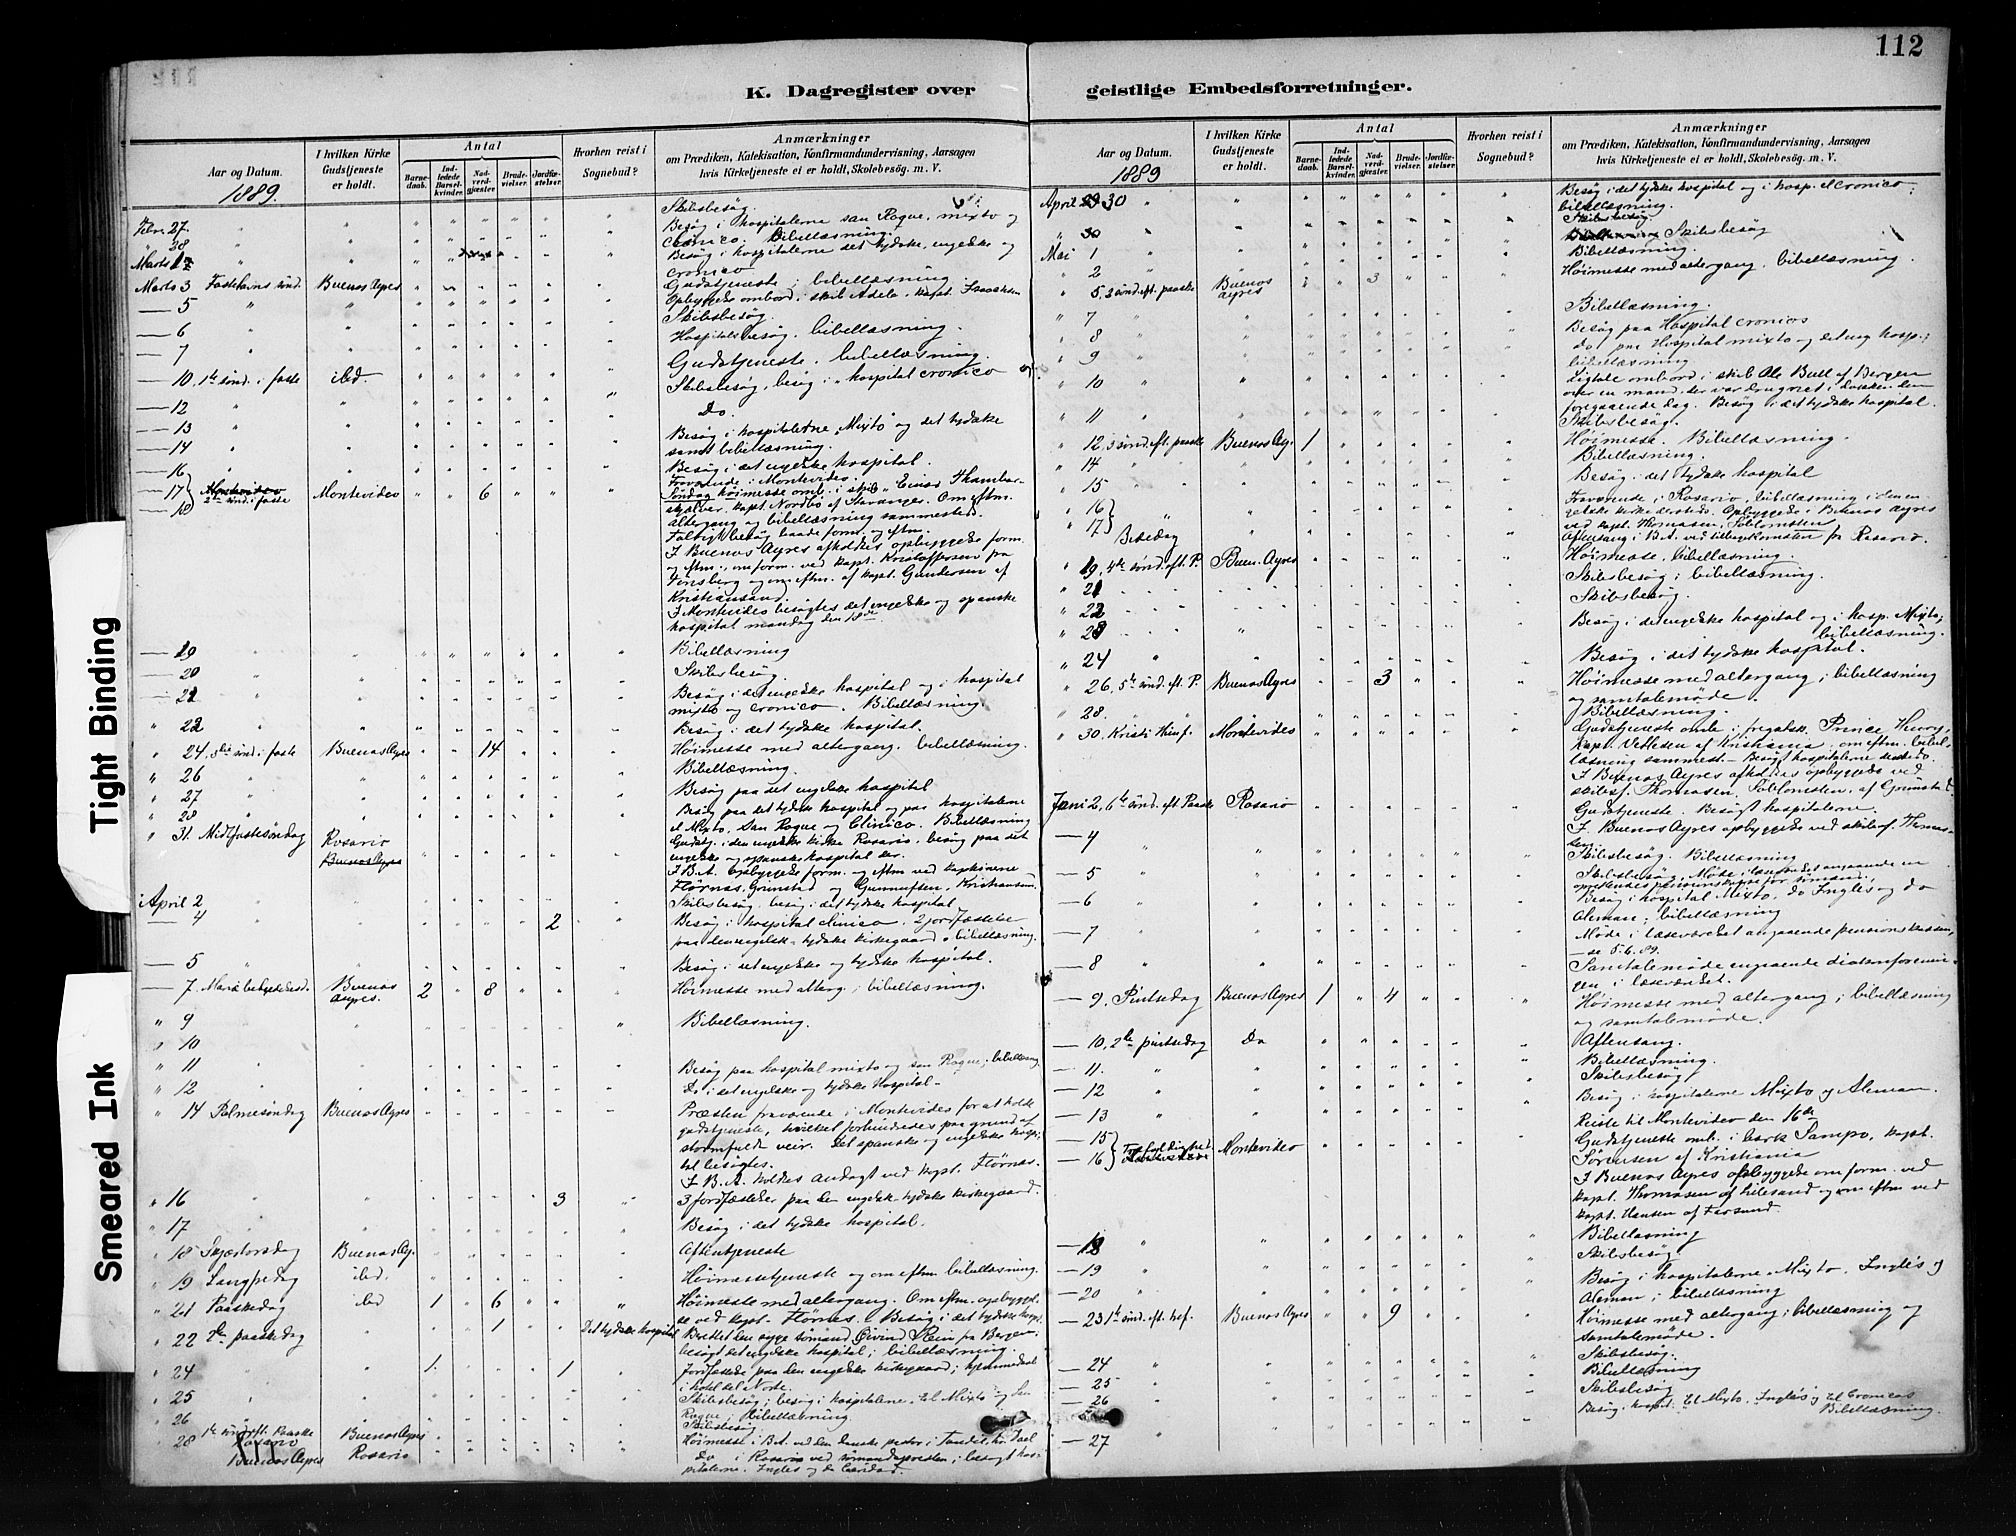 112
K. Dagregister over geistlige Embedsforretninger.
Aar og Datum.
1889.
I hvilken Kirke Gudstjeneste er holdt.
Antal
Barne-daab.
Ind-ledede Barsel-kvinder.
Nad-verd-gjæster.
Brude-vielser.
Jordfæ-stelser.
Hvorhen reist i Sognebud?
Anmærkninger
om Prædiken, Katekisation, Konfirmandundervisning, Aarsagen
hvis Kirketjeneste ei er holdt, Skolebesøg. m. V.
Febr. 27 Skibsbesøg.
" 28 Besøg i hospitalerne san Roque, mixto og
cronico. Bibellæsning.
Marts 1 Besøg i hospitalerne det tydske, engelske og
cronico
Marts 3 Fastelavns sönd. Buenos Ayres Gudstjeneste; bibellæsning.
— 5 Opbyggelse ombord i skib Adele, kapt. Isaaksen
— 6 Skibsbesøg.
— 7 Hospitalsbesøg. bibellæsning.
— 10. 1te sönd. i faste ibd. Gudstjeneste. bibellæsning.
— 12 Skibsbesøg, besøg i hospital cronico
— 13 Do.
— 14 Besøg i hospitalerne Mixto og det tydske
samt bibellæsning.
— 16 Besøg i det engelske hospital.
— 17 2den sönd. i faste Montevideo 6 Fraværende i Montevideo.
— 18 Søndag höimesse omb. i skib "Einar Thambar-
skjælver", kapt. Nordbö af Stavanger. Om eftm.
altergang og bibellæsning sammesteds.
besøg baade form. og eftm.
I Buenos Ayres afholdtes opbyggelse form.
og eftm., om form. ved kapt. Kristoffersen fra
Tönsberg og om eftm. af kapt. Gundersen af
Kristiansand.
I Montevideo besøgtes det engelske og spanske
hospital mandag den 18de.
— 19 Bibellæsning
— 20 Skibsbesøg.
— 21 Besøg i det engelske hospital og i hospital
mixto og cronico. Bibellæsning.
" 22 Besøg i det tydske hospital.
" 24. 3die sönd. i faste Buenos Ayres 14 Höimesse med altergang. bibellæsning.
" 26 Bibellæsning.
" 27 Besøg paa det engelske hospital
" 28 Besøg paa det tydske hospital og paa hospitalerne
el Mixto, San Roque og Clinico. Bibellæsning
" 31. Midtfastesöndag Rosario Gudstj. i den engelske kirke Rosario, besøg paa det
Buenos Ayres engelske og spanske hospital der.
I B.A. Opbyggelse form. og eftm ved kapteinerne
Flörnes, Grimstad og Gunnufsen, Kristiansand.
April 2 Skibsbesøg, besøg i det tydske hospital
— 4 2 Besøg i hospital clinico. 2 jordfæstelse
paa den engelsk-tydske kirkegaard. bibellæsning.
— 5 Besøg i det engelske og tydske hospital.
— 7. Mariæ bebudelsesd. Buenos Ayres. 2 8 Höimesse med alterg.; bibellæsning.
" 9 Bibellæsning.
" 10
" 11 Besøg paa hospital mixto og san Roque; bibellæsning
" 12 Do i det engelske og tydske Hospital.
" 14 Palmesöndag Buenos Ayres Præsten fraværende i Montevideo for at holde
gudstjeneste, hvilket forhindredes paa grund af
stormfuldt veir. Det spanske og engelske hospi-
tal besøgtes.
I B.A. holdes andagt ved kapt. Flörnes.
" 16 3 3 jordfæstelser paa den engelsk-tydske kirkegaard.
" 17 Besøg i det tydske hospital.
" 18 Skjærtorsdag Buenos Ay. Aftentjeneste
" 19 Langfredag ibd. Höimessetjeneste og om eftm bibellæsning.
" 21 Paaskedag ibd 1 6 Höimesse med altergang. Om eftm. opbyggel-
se ved kapt. Flörnes. Besøg i det tydske hospt.
" 22 2den paaskedag 1 Det tydske hospital Berettet den syge sömand Eivind Stein fra Bergen.
besøgt det engelske hospital; bibellæsning.
" 24 1 1 Jordfæstede paa den engelske kirkegaard; hjemmedaab
i hotel del Norte.
" 25 Skibsbesøg; besøg i hospitalerne el Mixto og San
Roque; bibellæsning.
" 26 Skibsbesøg
" 28 1te sönd. eft. Paaske Buenos Ayres Höimesse i B.A. ved den danske pastor i Tandil, hr.
Rosario Buenos Ayres Rosario Do i Rosario ved sömandspresten; besøgt hos-
pitalerne. Ingles og de Caridad.
Aar og Datum.
1889
I hvilken Kirke Gudstjeneste er holdt.
Antal
Barne-daab.
Ind-ledede Barsel-kvinder.
Nad-verd-gjæster.
Brude-vielser.
Jordfæ-stelser.
Hvorhen reist i Sognebud?
Anmærkninger
om Prædiken, Katekisation, Konfirmandundervisning, Aarsagen
hvis Kirketjeneste ei er holdt, Skolebesøg. m. V.
April 30 Besøg i det tydske hospital og i hosp. el cronico;
bibellæsning.
" 30 Skibsbesøg
Mai 1 Skibsbesøg
" 2 Bibellæsning.
" 5. 2 sönd. eft. paaske Buenos Ayres 3 Höimesse med altergang. bibellæsning.
" 7 Bibellæsning.
" 8 Besøg paa Hospital cronicos
" 9 do paa Hospital mixto og det eng hosp.;
bibellæsning
" 10 Ligtale ombord i skib Ole Bull af Bergen
over en mand, der var druknet i dokken den
foregaaende dag. Besøg i det tydske hospital.
" 11 Skibsbesøg.
" 12. 3 sönd. eft. paaske Buenos Ay. 1 Höimesse. Bibellæsning.
" 14 Bibellæsning.
" 15 Besøg i det tydske hospital
" 16 Fraværende i Rosario, bibellæsning i den en-
gelske kirke dersteds. Opbyggelse i Buenos Ayres
" 17 Bededag ved kapt. Thomassen, Söblomsten
Aftensang i B.A. ved tilbagekomsten fr Rosario.
" 19. 4de sönd. eft. P. Buen. Ayres Höimesse, bibellæsning.
" 21 Skibsbesøg; bibellæsning.
" 22 Skibsbesøg.
" 23 Besøg i det engelske hospital og i hosp. Mixto;
bibellæsning.
" 24 Besøg i det tydske hospital.
" 26, 5te sönd. eft. P. Buenos Ayres 3 Höimesse med altergang; bibellæsning
og samtalemöde.
" 28. Bibellæsning.
" 30. Kristi Himf. Montevideo Gudstjeneste omb. i fregatsk. Prince Henry,
kapt. Vetlesen af Kristiania; om eftm. bibel-
læsning sammest. — Besøgt hospitalerne
I Buenos Ayres afholdtes opbyggelse ved
skibsf. Thomasen, Söblomsten, af Grimstad.
Juni 2, 6te sönd. eft Paaske Rosario Gudstjeneste. Besøgt hospitalerne.
I Buenos Ayres opbyggelse ved skibsf. Thomas-
sen.
— 4 Skibsbesøg. Bibellæsning
— 5 Skibsbesøg, Möde i læseværelset angaaende en
oprettendes pensionskasse for sömænd.
— 6 Besøg i hospital Mixto, do Inglés og do
Aleman; bibellæsning
— 7 Möde i læseværelset angaaende pensionskassen,
— se 5.6.89.
— 8 Samtalemöde angaaende diakonforenin-
gen i læseværelset.
— 9. Pintsedag Buenos Ayres 1 4 Höimesse med altergang; bibellæsning
og samtalemöde.
— 10. 2den pintsedag Do Aftensang.
— 11. Bibellæsning.
— 12 Skibsbesøg
— 13 Besøg i hospitalerne Mixto og Aleman.
— 15 Reiste til Montevideo den 16de
— 16 Trefoldighed Montevideo Gudstjeneste omb. i bark Sampo, kapt.
Sörensen af Kristiania
I Buenos Ayres opbyggelse om form. ved
kapt. Thomasen af Lillesand og om eftm ved
kapt. Hansen af Farsund.
— 18 Bibellæsning
— 19 Skibsbesøg
— 20 Besøg i hospitalerne Mixto, Inglés og
Aleman; bibellæsning
— 23 1te sönd. eft. tref. Buenos Ayres 9 Höimesse med altergang; bibellæsning og
samtalemöde.
— 24 Skibsbesøg.
— 25 Bibellæsning
— 26 Skibsbesøg
— 27 Besøg. hospit. El Mixto, Inglés og el Cronicos
Bibellæsning.
Tight Binding
Smeared Ink